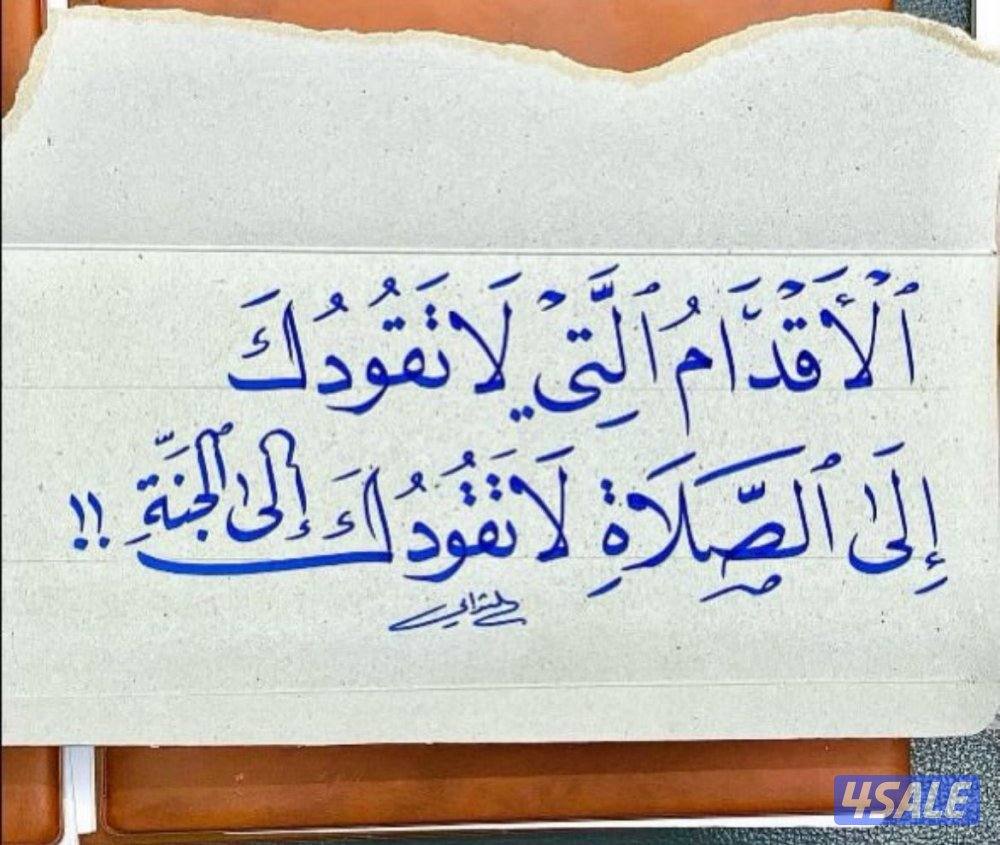 ٱلْأَقْدَامُ ٱلَّتِي لَا تَقُودُكَ
إِلَى ٱلصَّلَاةِ لَا تَقُودُكَ إِلَى ٱلْجَنَّةِ !!
4SALE